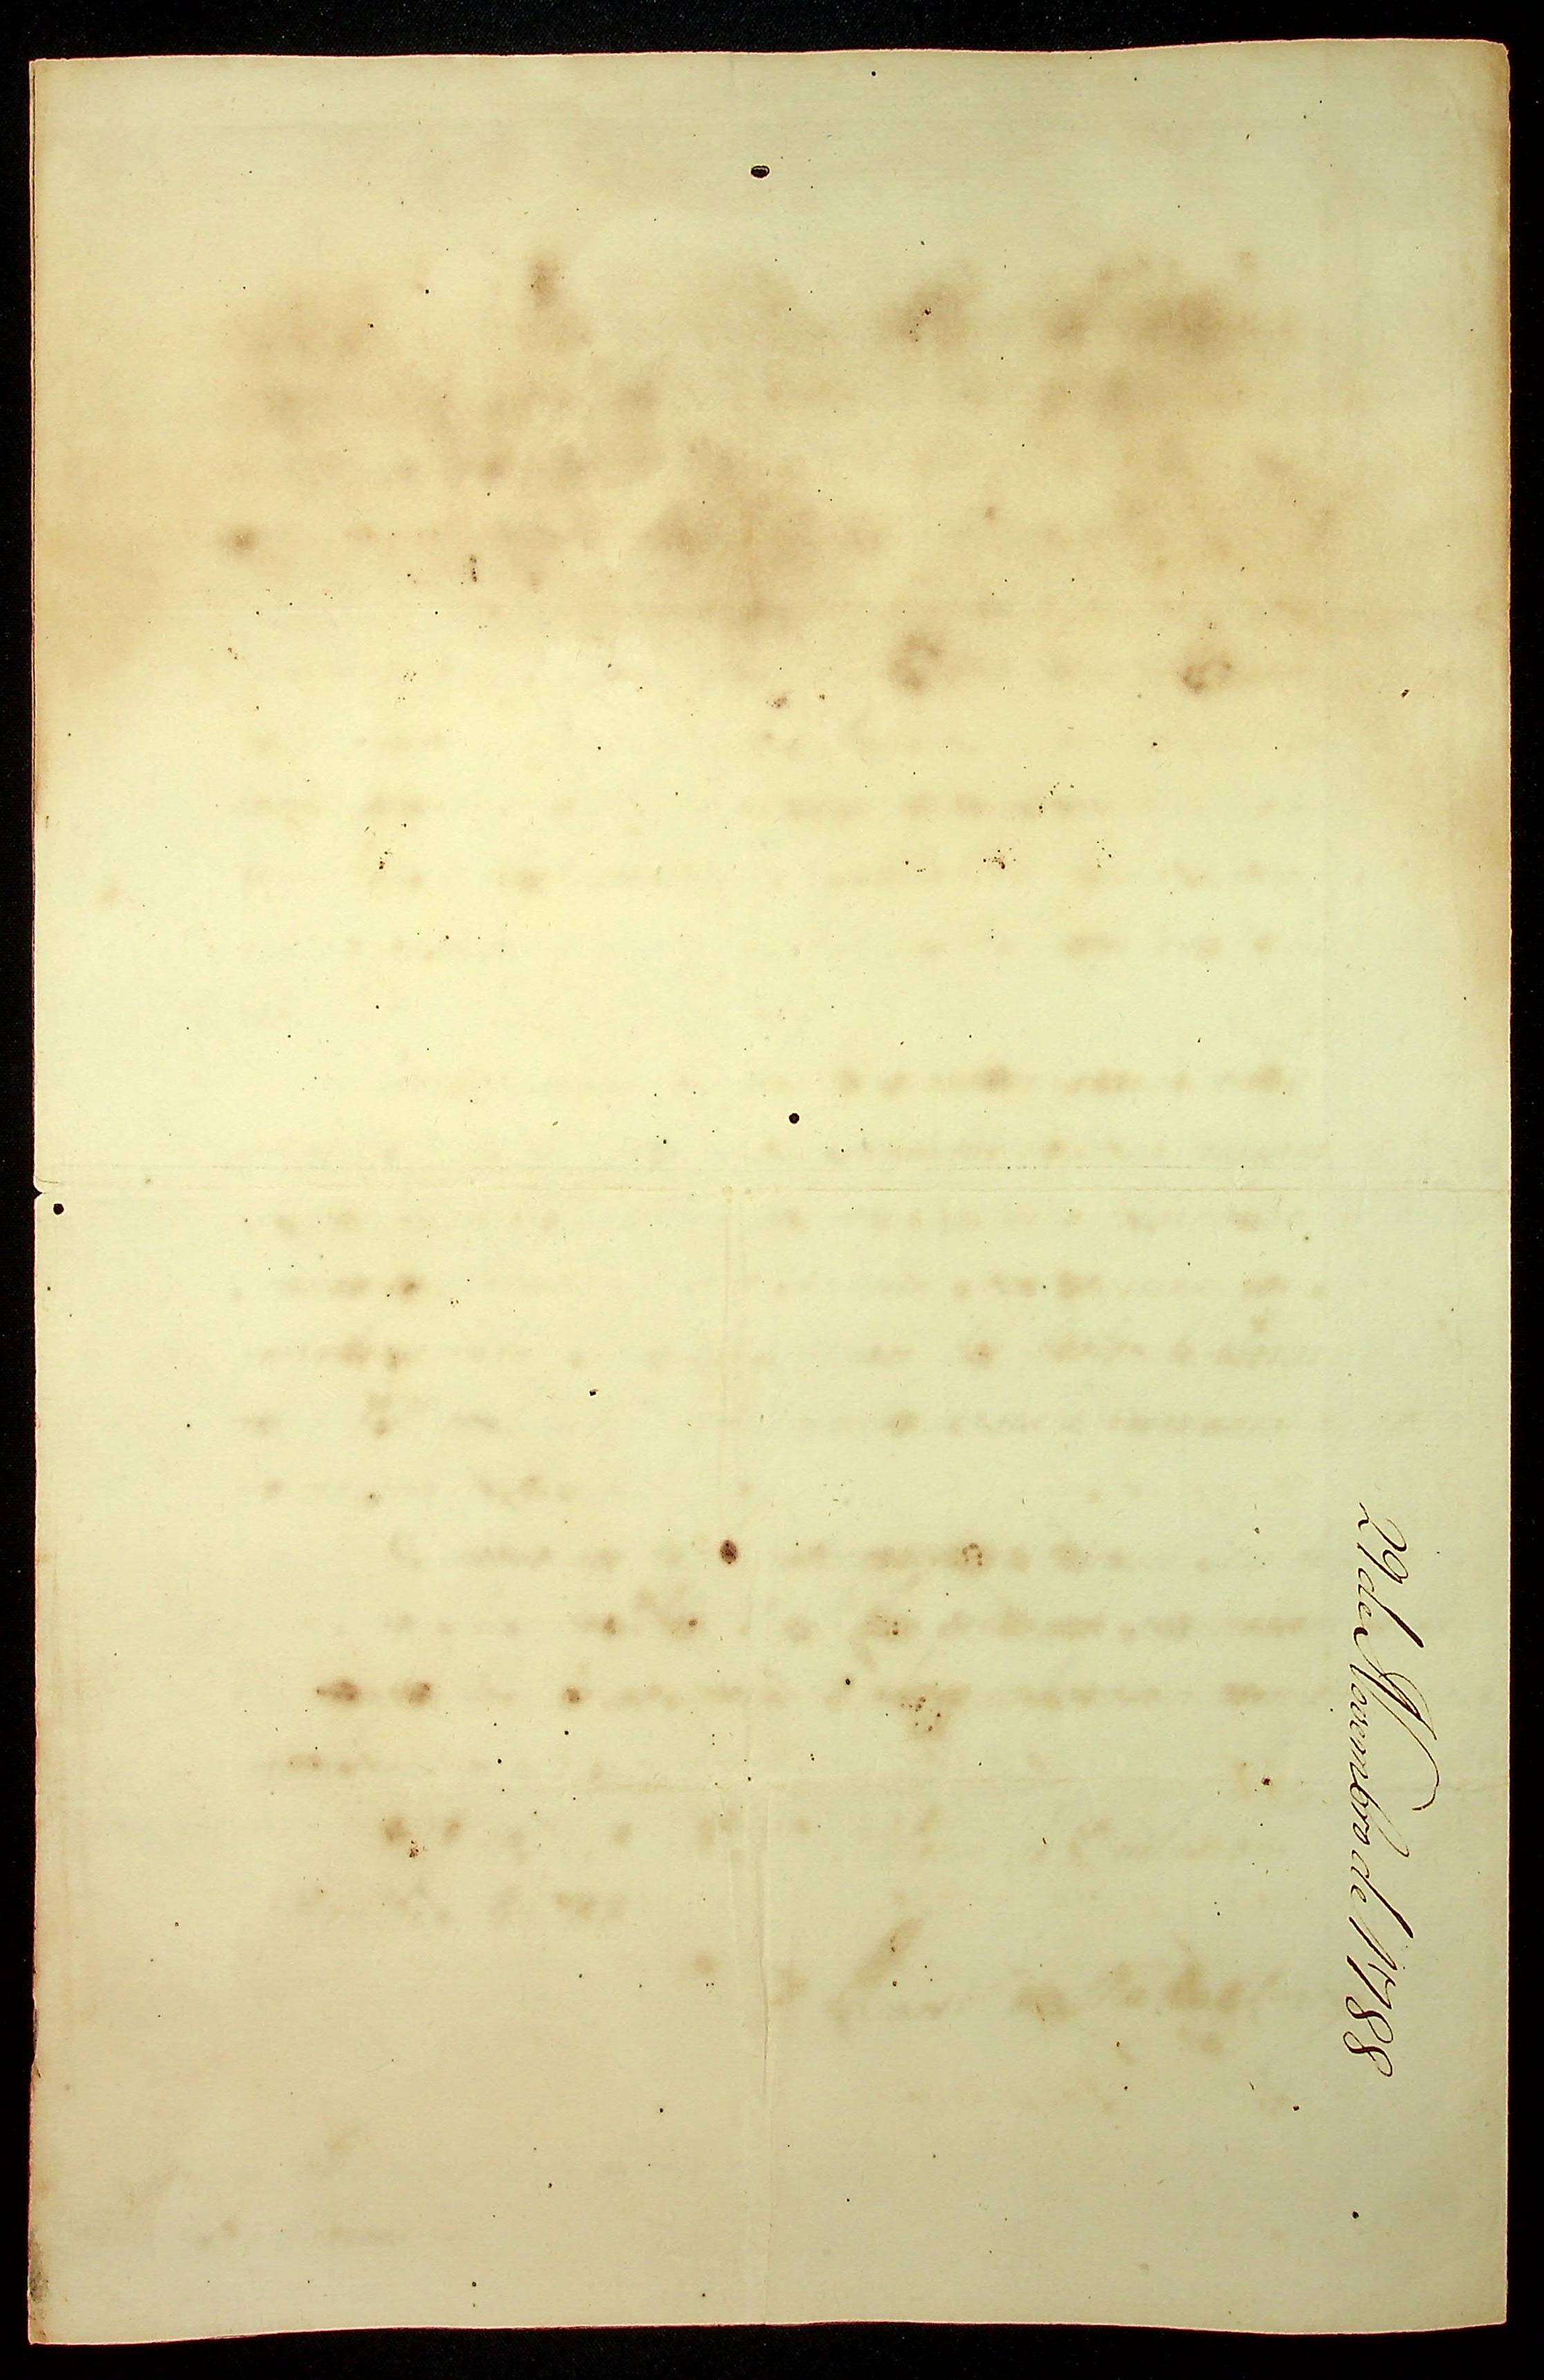 29 de Novembro de 1788